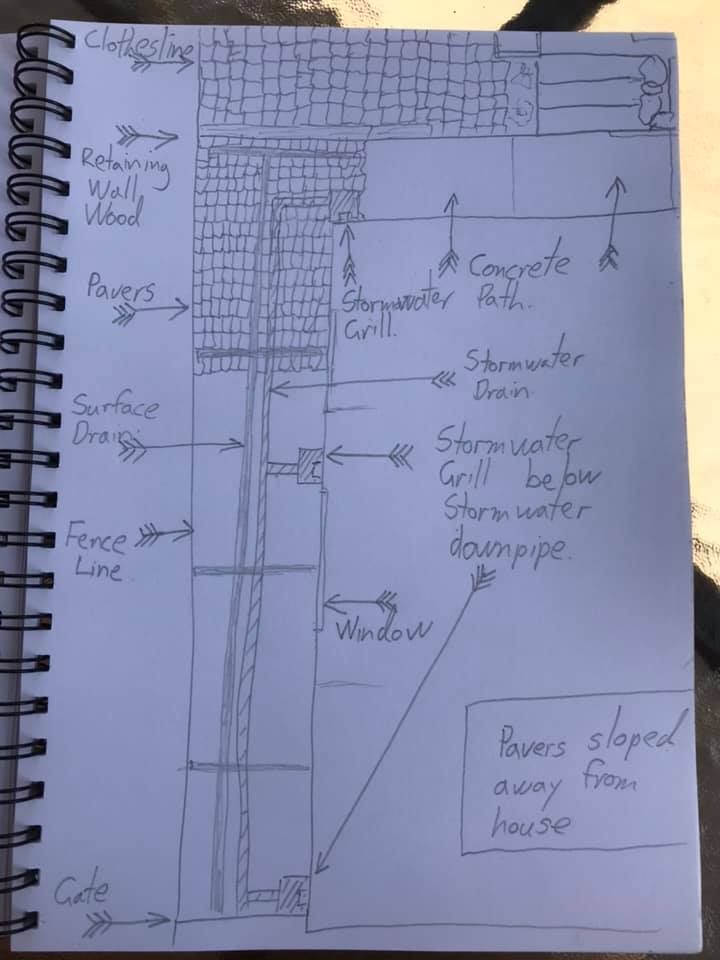 Clothesline
Retaining
Wall
Wood
Pavers
Surface
Drain.
Fence
Line.
Gate
Stormwater
Grill.
Concrete
Path.
Stormwater
Drain.
Stormwater
Grill below
Stormwater
downpipe.
Window
Pavers sloped
away from
house